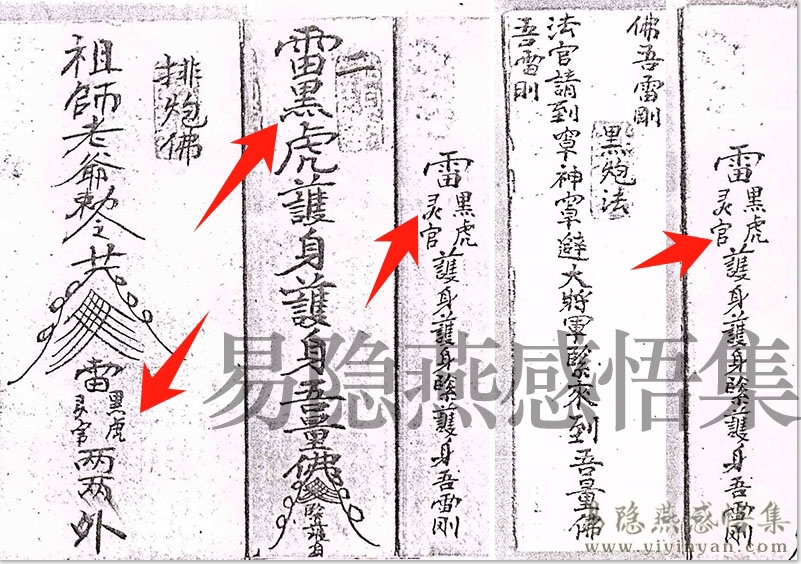 雷黑虎灵官護身護身緊護身吾雷剛
佛吾雷剛
黑炮法
法官請到罩神罩避大將軍緊來到吾量佛
吾雷則
雷黑虎灵官護身護身緊護身吾雷剛
雷黑虎護身護身吾量佛緊護身
排炮佛
祖師老爺勅令共雷黑虎灵官两两外
易隐燕感悟集
易隐燕感悟集
www.yiyinyan.com